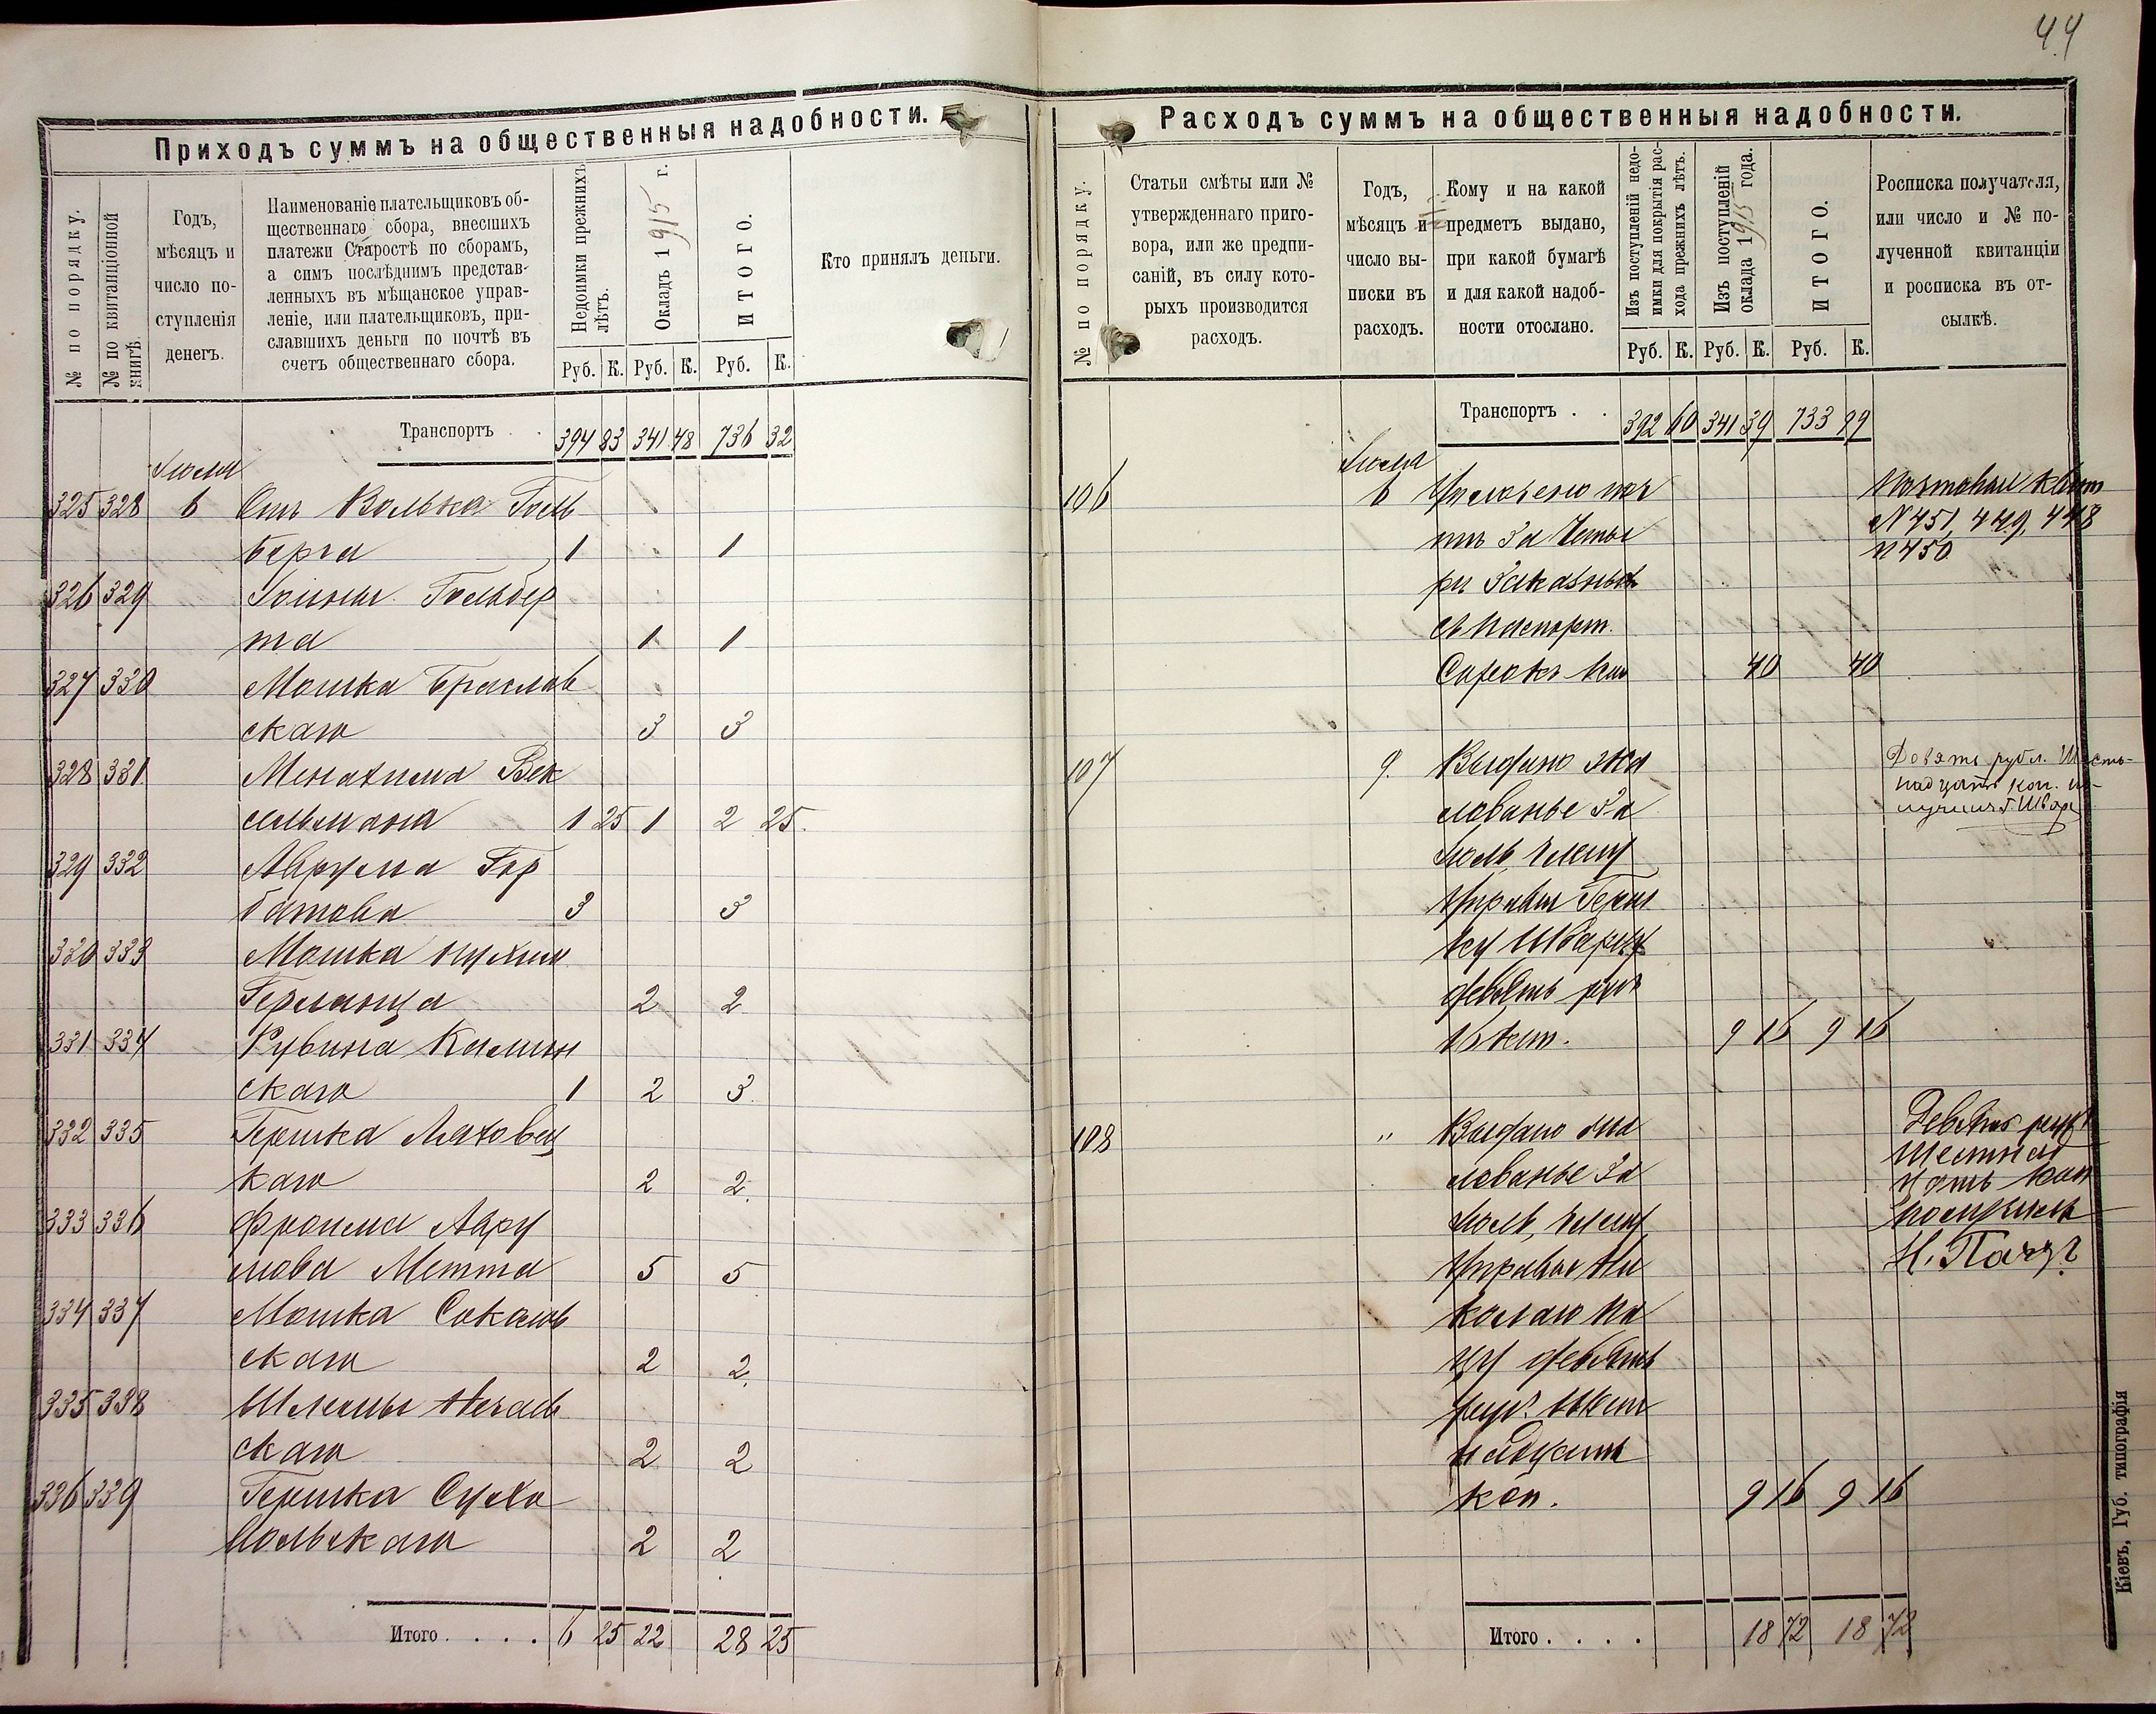 44
Приходъ суммъ на общественныя надобности.
№ по порядку.
№ по квитанціонной книгѣ.
Годъ,
мѣсяцъ и
число по-
ступленія
денегъ.
Наименованіе плательщиковъ об-
щественнаго сбора, внесшихъ
платежи Старостѣ по сборамъ,
а симъ послѣднимъ представ-
ленныхъ въ мѣщанское управ-
леніе, или плательщиковъ, при-
славшихъ деньги по почтѣ въ
счетъ общественнаго сбора.
Недоимки прежнихъ
лѣтъ.
Окладъ 1915 г.
ИТОГО.
Кто принялъ деньги.
Руб. К. Руб. К. Руб. К.
Транспортъ . . 394 83 341 48 736 32
Іюля
325 328 6 Отъ Волька Голь
берга 1 1
326 329 Іойны Гольбер
га 1 1
327 330 Мошка Браслав
скаго 3 3
328 331 Менахима Век
сельмана 1 25 1 2 25.
329 332 Аврума Гор
батова 3 3
330 333 Мошка
Германца 2 2
331 334 Рувина Калин
скаго 1 2 3.
332 335 Гершка Ляховец
каго 2 2.
333 336 Фроима Авру
мова Метта 5 5
334 337 Мошка Соколов
скаго 2 2.
335 338 Шлемы Нечаев
скаго 2 2
336 339 Гершка Сухо
вольскаго 2 2
Итого. . . . 6 25 22 28 25
Расходъ суммъ на общественныя надобности.
№ по порядку.
Статьи смѣты или №
утвержденнаго приго-
вора, или же предпи-
саній, въ силу кото-
рыхъ производится
расходъ.
Годъ,
мѣсяцъ и
число вы-
писки въ
расходъ.
Кому и на какой
предметъ выдано,
при какой бумагѣ
и для какой надоб-
ности отослано.
Изъ поступленій недо-
имки для покрытія рас-
хода прежнихъ лѣтъ.
Изъ поступленій
оклада 1915 года.
ИТОГО.
Росписка получателя,
или число и № по-
лученной квитанціи
и росписка въ от-
сылкѣ.
Руб. К. Руб. К. Руб. К.
Транспортъ . . 392 60 341 39 733 99
Іюля
106 6 Уплочено поч
тѣ за четы
ри заказных
съ паспорт.
Сорокъ коп 40 40
Почтовыи квит
№ 451, 449, 448
и 450
107 9. Выдано жа
лованье за
Іюль, члену
Управы Герш
ку Шварцу
девять руб
16 коп. 9 16 9 16
Довять рубл. Шест-
надцать коп. по-
лучилъ Г. Шварц
108 " Выдано жа
лованье за
Іюль, члену
Управы Ни
колаю Па
цу девять
руб. шест
надцать
коп. 9 16 9 16
Девять руб
шестнад
цать коп
получилъ
Н. Пацъ
Итого. . . . 18 72 18 72
Кіевъ, Губ. типографія